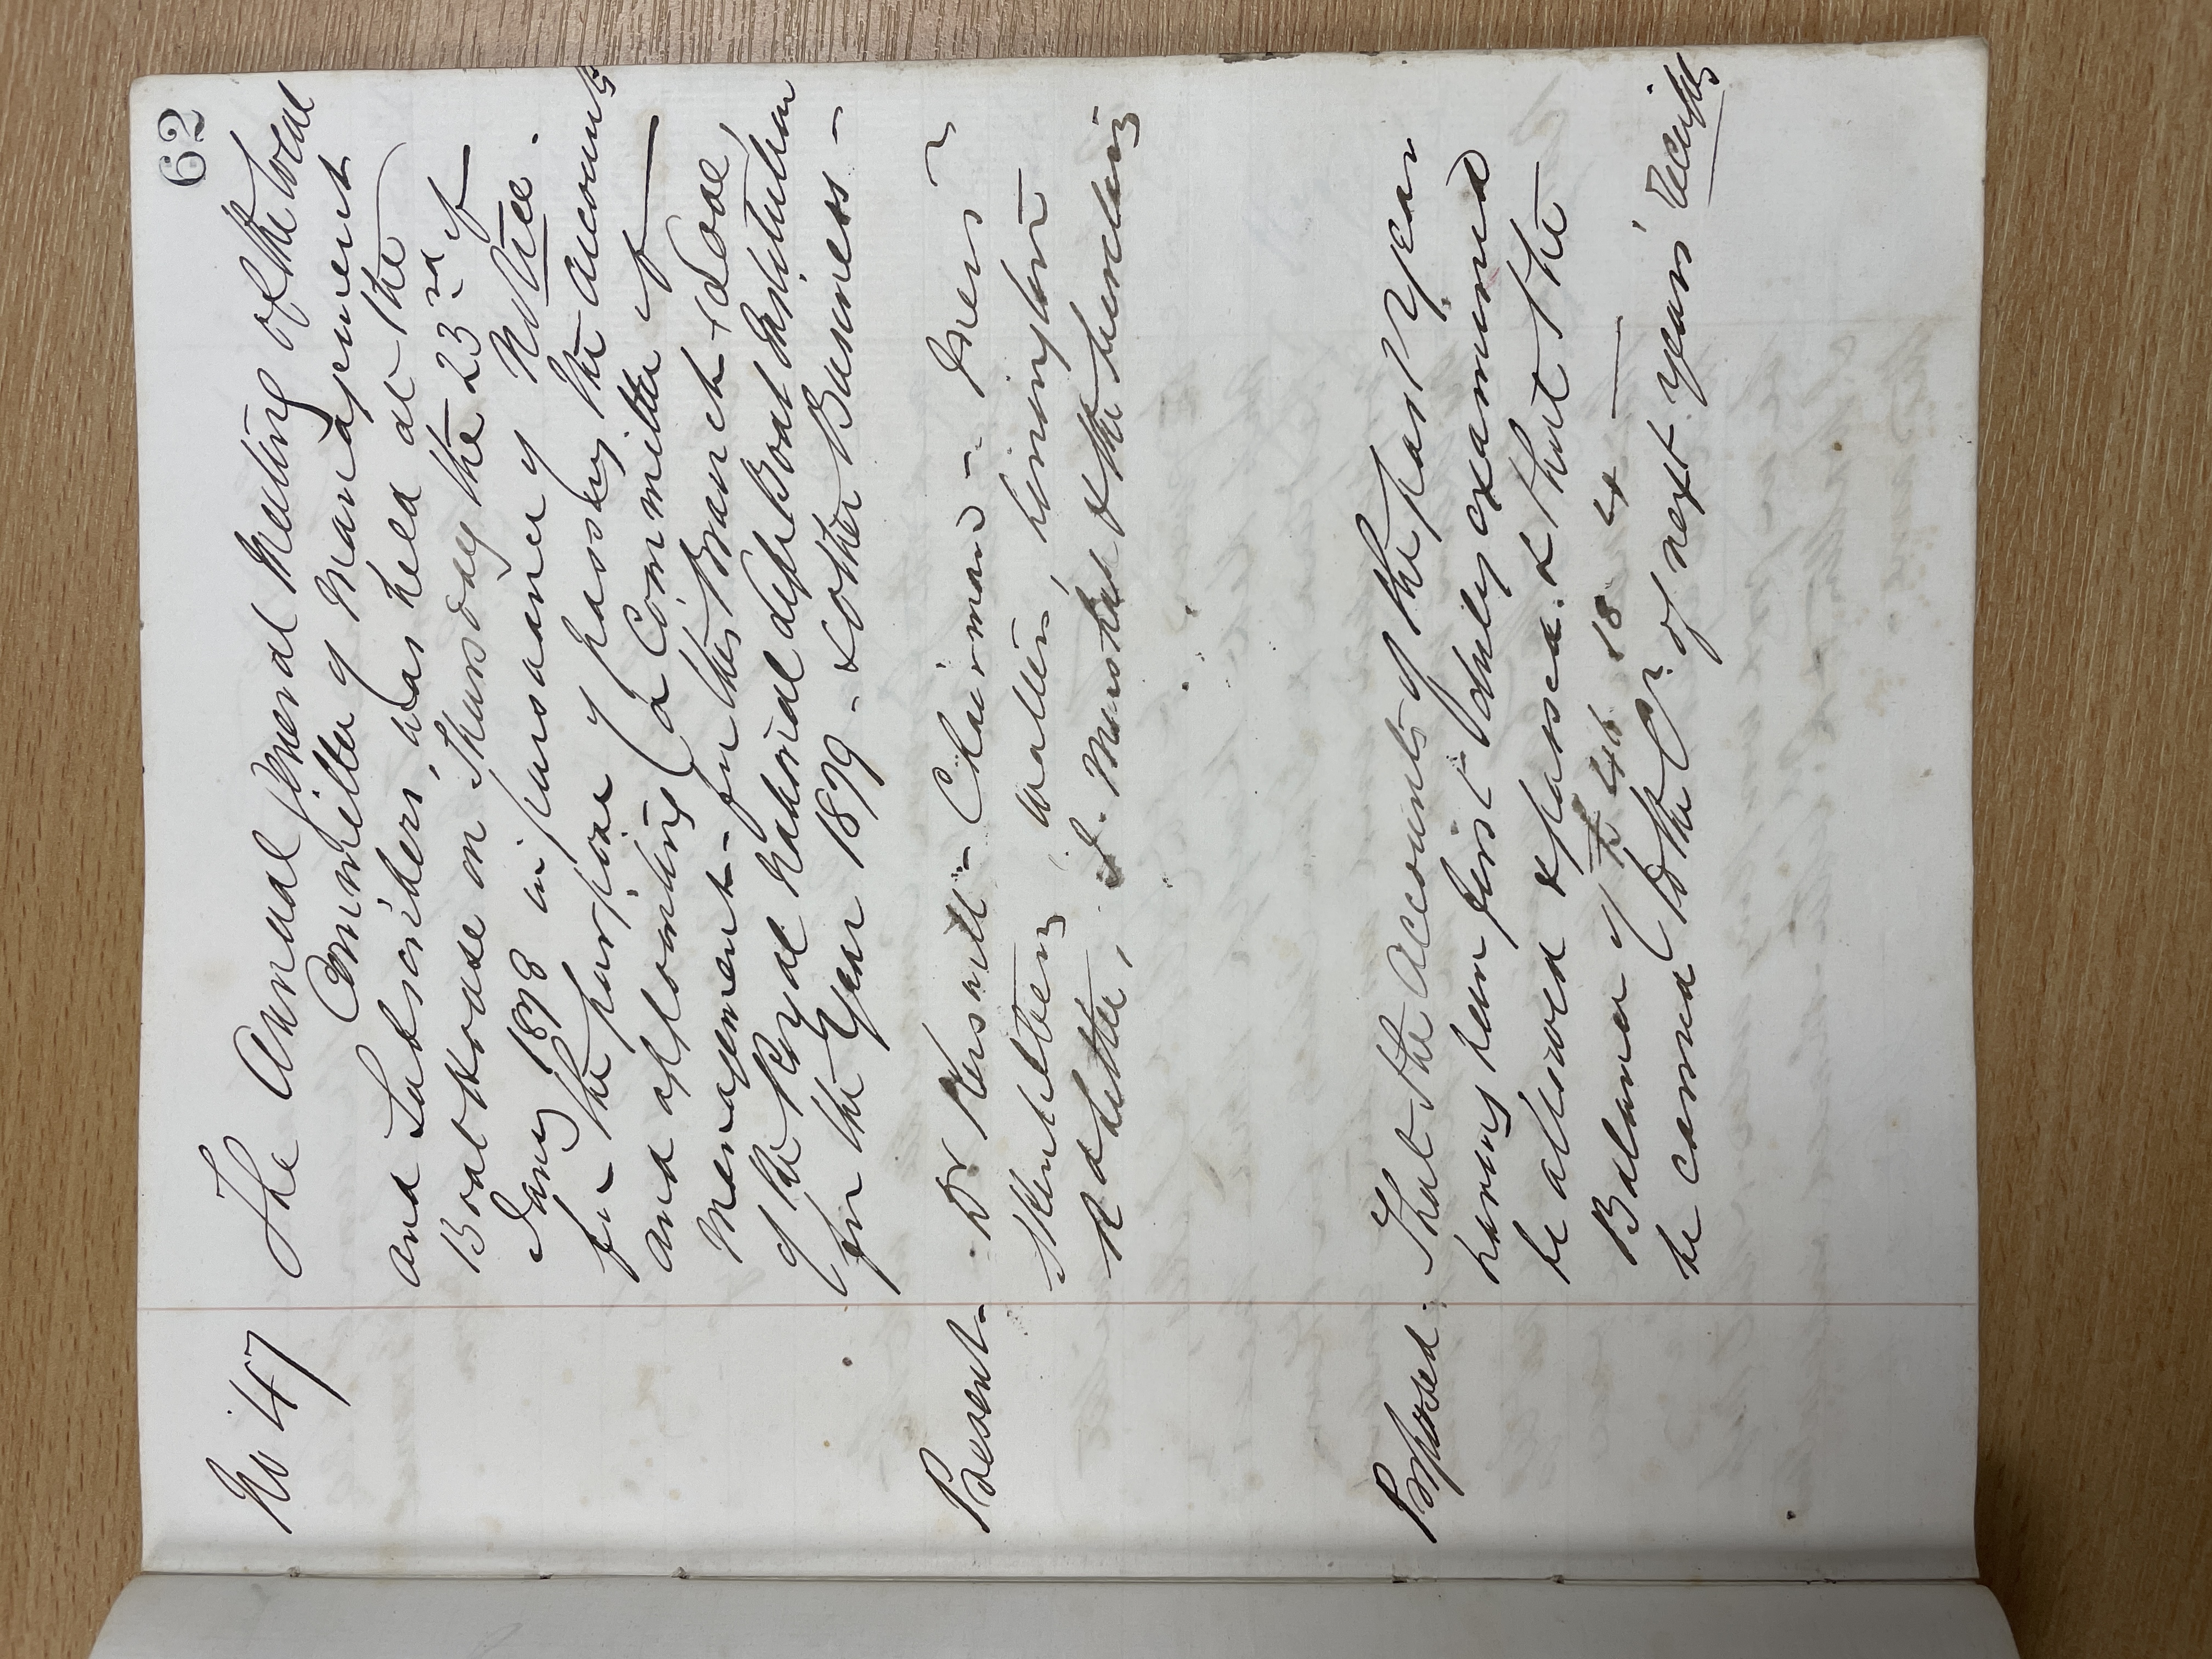 62
No 47 The Annual General Meeting of the Local
Committee of Management
and Subscribers, was held at the
Boat house on Thursday the 23rd of
Jany 1898 in pursuance of Notice.
for the purpose of passing the accounts
and appointing (a Committee of
Management for this Branch & Local
of the Royal National Life Boat Institution
for the Year 1899 - & other Business -
Present - Dr - Chairman -
Walters,
& the
Proposed. That the Accounts of the past Year
having been first duly examined
be allowed & passed. & that the
Balance of 18 4
be carried to the Cr. of next years' receipts